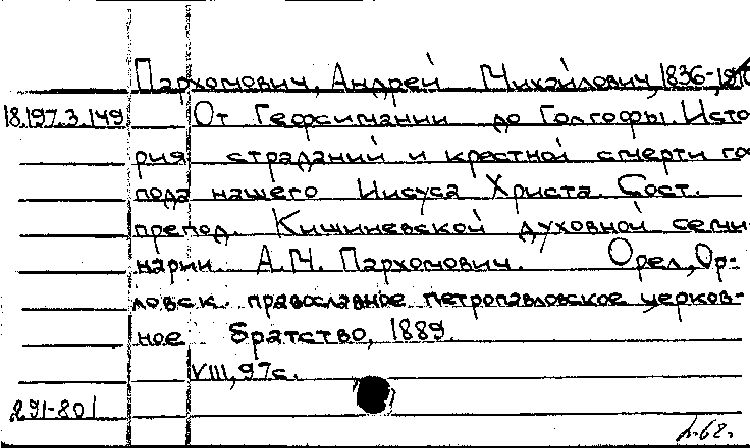 Пархомович, Андрей Михайлович, 1836-1910
18.197.3.149 От Гефсимании до Голгофы. Исто
рия страданий и крестной смерти го
пода нашего Иисуса Христа. Сост.
препод. Кишиневской духовной семи-
нарии А.М. Пархомович. Орел, Ор-
ловск. православное петропавловское церков-
ное братство, 1889.
VIII, 97с.
291-801